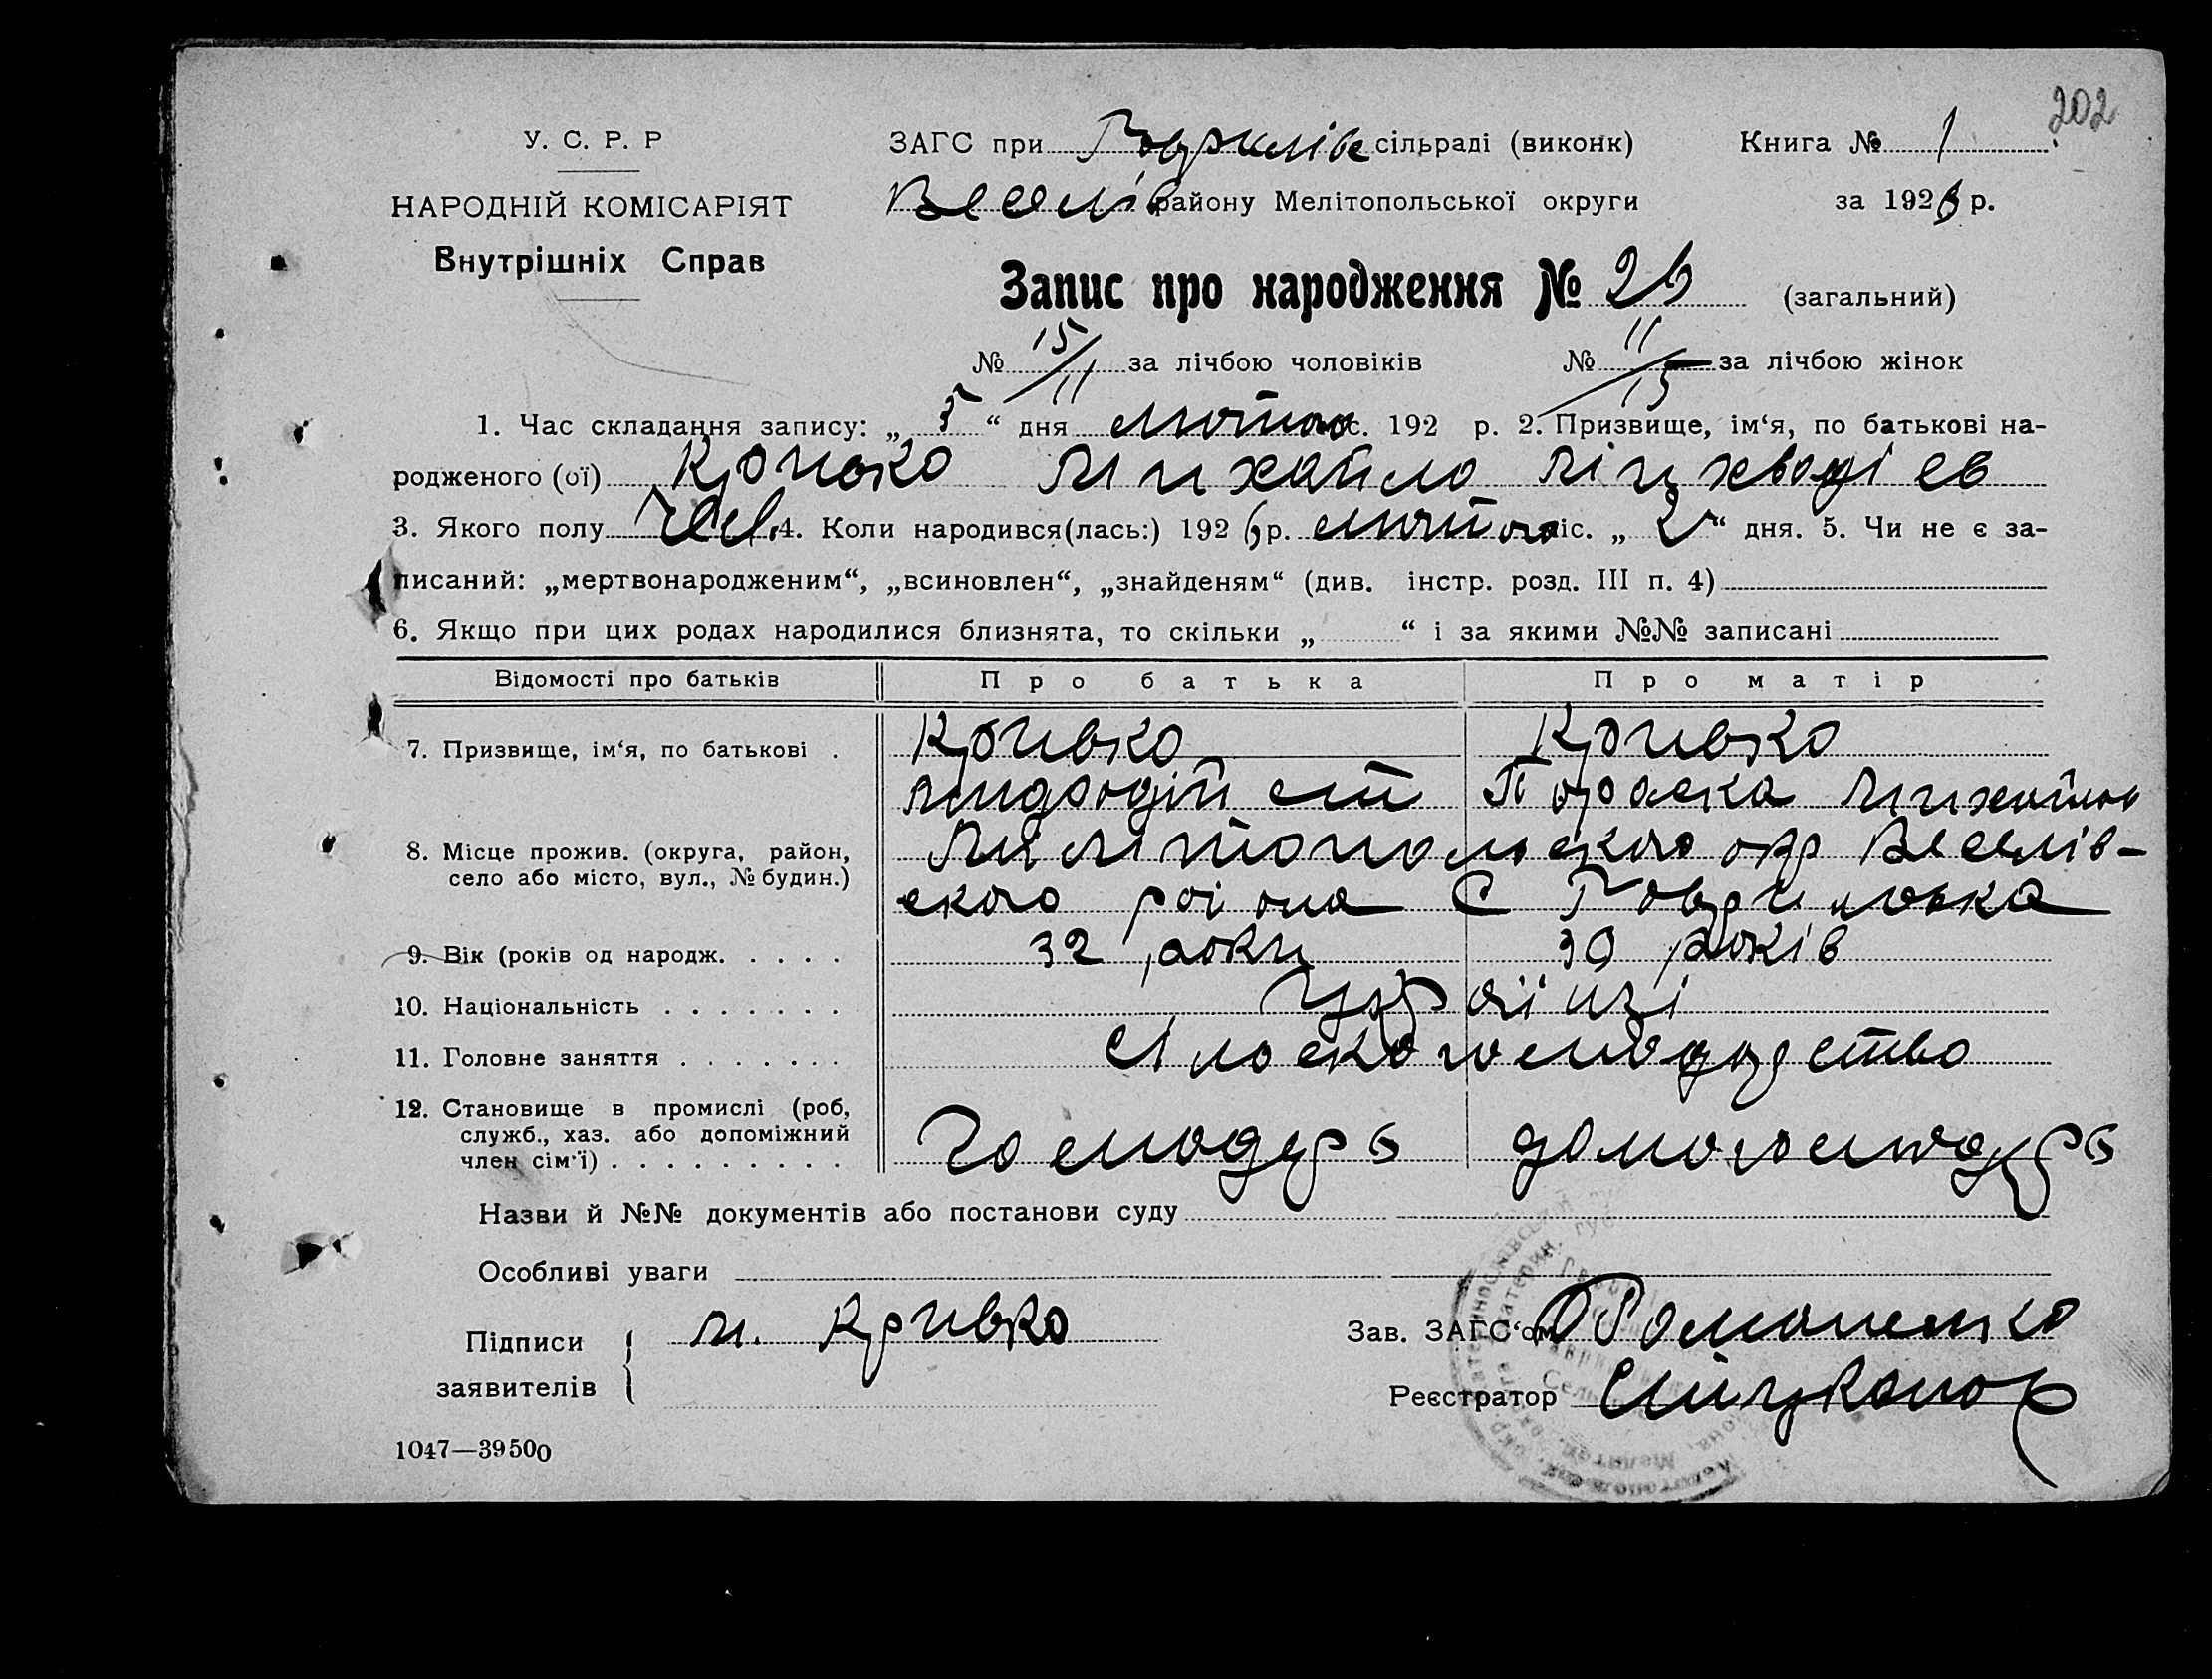 202
У. С. Р. Р
НАРОДНІЙ КОМІСАРІЯТ
Внутрішніх Справ
ЗАГС при Гаврилівс сільраді (виконк) Книга № 1
Веселів району Мелітопольської округи за 1926 р.
Запис про народження № 26 (загальний)
№ 15/11 за лічбою чоловіків № 11/15 за лічбою жінок
1. Час складання запису: „ 5 “ дня лютого міс. 192 р. 2. Призвище, ім‘я, по батькові на-
родженого (ої) Михайло
3. Якого полу Чол. 4. Коли народився(лась:) 1926 р. лютого міс. „ 2 “ дня. 5. Чи не є за-
писаний: „мертвонародженим“, „всиновлен“, „знайденям“ (див. інстр. розд. III п. 4)
6. Якщо при цих родах народилися близнята, то скільки „ “ і за якими №№ записані
Відомості про батьків Про батька Про матір
7. Призвище, ім‘я, по батькові . Кривко Кривко
Параска Михайлов
8. Місце прожив. (округа, район, село або місто, вул., № будин.) Мелітопольскою окр Веселів-
ского раіона С Гавриловка
9. Вік (років од народж. . . . . 32 роки 30 років
10. Національність . . . . . . . украінці
11. Головне заняття . . . . . . . Сільске господарство
12. Становище в промислі (роб, служб., хаз. або допоміжний член сім‘ї) . . . . . . . . . Господарь домогосподарь
Назви й №№ документів або постанови суду
Особливі уваги
Підписи заявителів м. Кривко
Зав. ЗАГС‘ом Романенко
Реєстратор
1047—39500